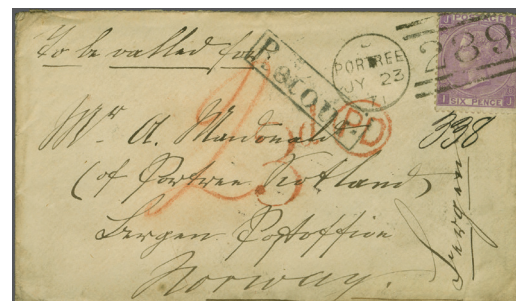 To be called for
P. Scour.
PORTREE
JY 23
71
289
POSTAGE
I J
J I
SIX PENCE
PD
Mr. A. Macdonald
338
(of Portree Scotland)
Bergen Postoffice
Norway.
Bergen